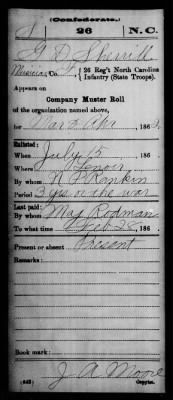 (Confederate.)
S 26 N.C.
G D Sherrill
Musician, Co. 26 Reg't North Carolina
Infantry (State Troops).
Appears on
Company Muster Roll
of the organization named above,
for Mar & Apr, 186
Enlisted:
When July 15, 186
Where Lenoir
By whom N P Rankin
Period 3 yrs or the war
Last paid:
By whom Maj Rodman
To what time Feb 28, 186
Present or absent Present
Remarks:
Book mark:
(642) J A Moore
Copyist.